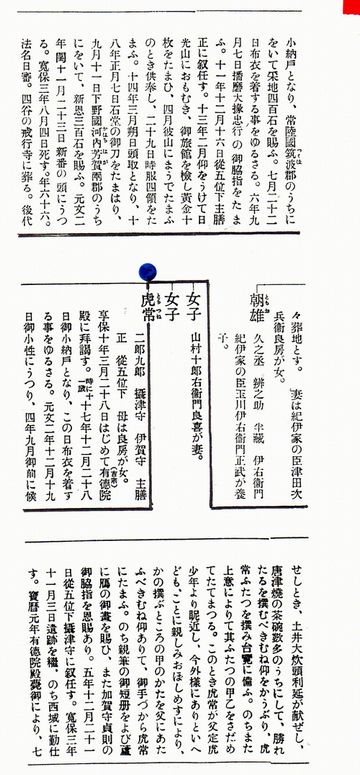 小納戸となり、常陸國眞壁郡のうちに
をいて采地四百石を賜ふ。七月二十二
日布衣を着する事をゆるさる。六年九
月七日播磨大掾忠行の御脇指をたま
ふ。十一年十二月十六日從五位下主膳
正に叙任す。十三年二月仰をうけて日
光山におもむき、御旅館を檢し黃金十
枚をたまひ、四月彼山にまうでたまふ
のとき供奉し、二十九日時服四領をた
まふ。十四年三月朔日頭取となり、十
八年正月七日石堂の御刀をたまはり、
九月十一日下野國河内芳賀兩郡のうち
にをいて、新恩三百石を賜ふ。元文二
年閏十一月二十三日新番の頭にうつ
る。寬保三年八月四日死す。年六十六。
法名日審。四谷の戒行寺に葬る。後代
々葬地とす。妻は紀伊家の臣津田次
兵衞良房が女。
朝雄
久之丞 辨之助 半藏 伊右衞門
紀伊家の臣玉川伊右衞門正武が養
子。
女子
山村十郎右衞門良喜が妻。
女子
虎常 とらつね
二郎九郎 攝津守 伊賀守 主膳
正 從五位下 母は良房が女。
享保十年三月二十八日はじめて有德院
殿に拜謁す。時に十一歲 十七年十二月二十八
日御小納戸となり、この日布衣を着す
る事をゆるさる。元文二年十二月十九
日御小性にうつり、四年九月御前に候
せしとき、土井大炊頭利延が獻ぜし、
唐津燒の茶碗數多のうちにして、勝れ
たるを撰むべきむね仰をかうぶり、虎
常ふたつを撰み台覽に備ふ。のちまた
上意によりて其ふたつの甲乙をさだめ
てたてまつる。このとき虎常が父定虎
少年より昵近し、今外樣にありといへ
ども、ことに親しみおほしめすにより、
かの撰ぶところの甲のかたを父にあた
ふべきむね仰ありて、御手づから虎常
にたまふ。のち親筆の御短册をよび蘆
に鴈の御畫を賜ひ、また加賀守貞則の
御脇指を恩賜あり。五年十二月二十一
日從五位下攝津守に叙任す。寬保三年
十一月三日遺跡を繼、のち西城に勤仕
す。寶曆元年有德院殿薨御により、七